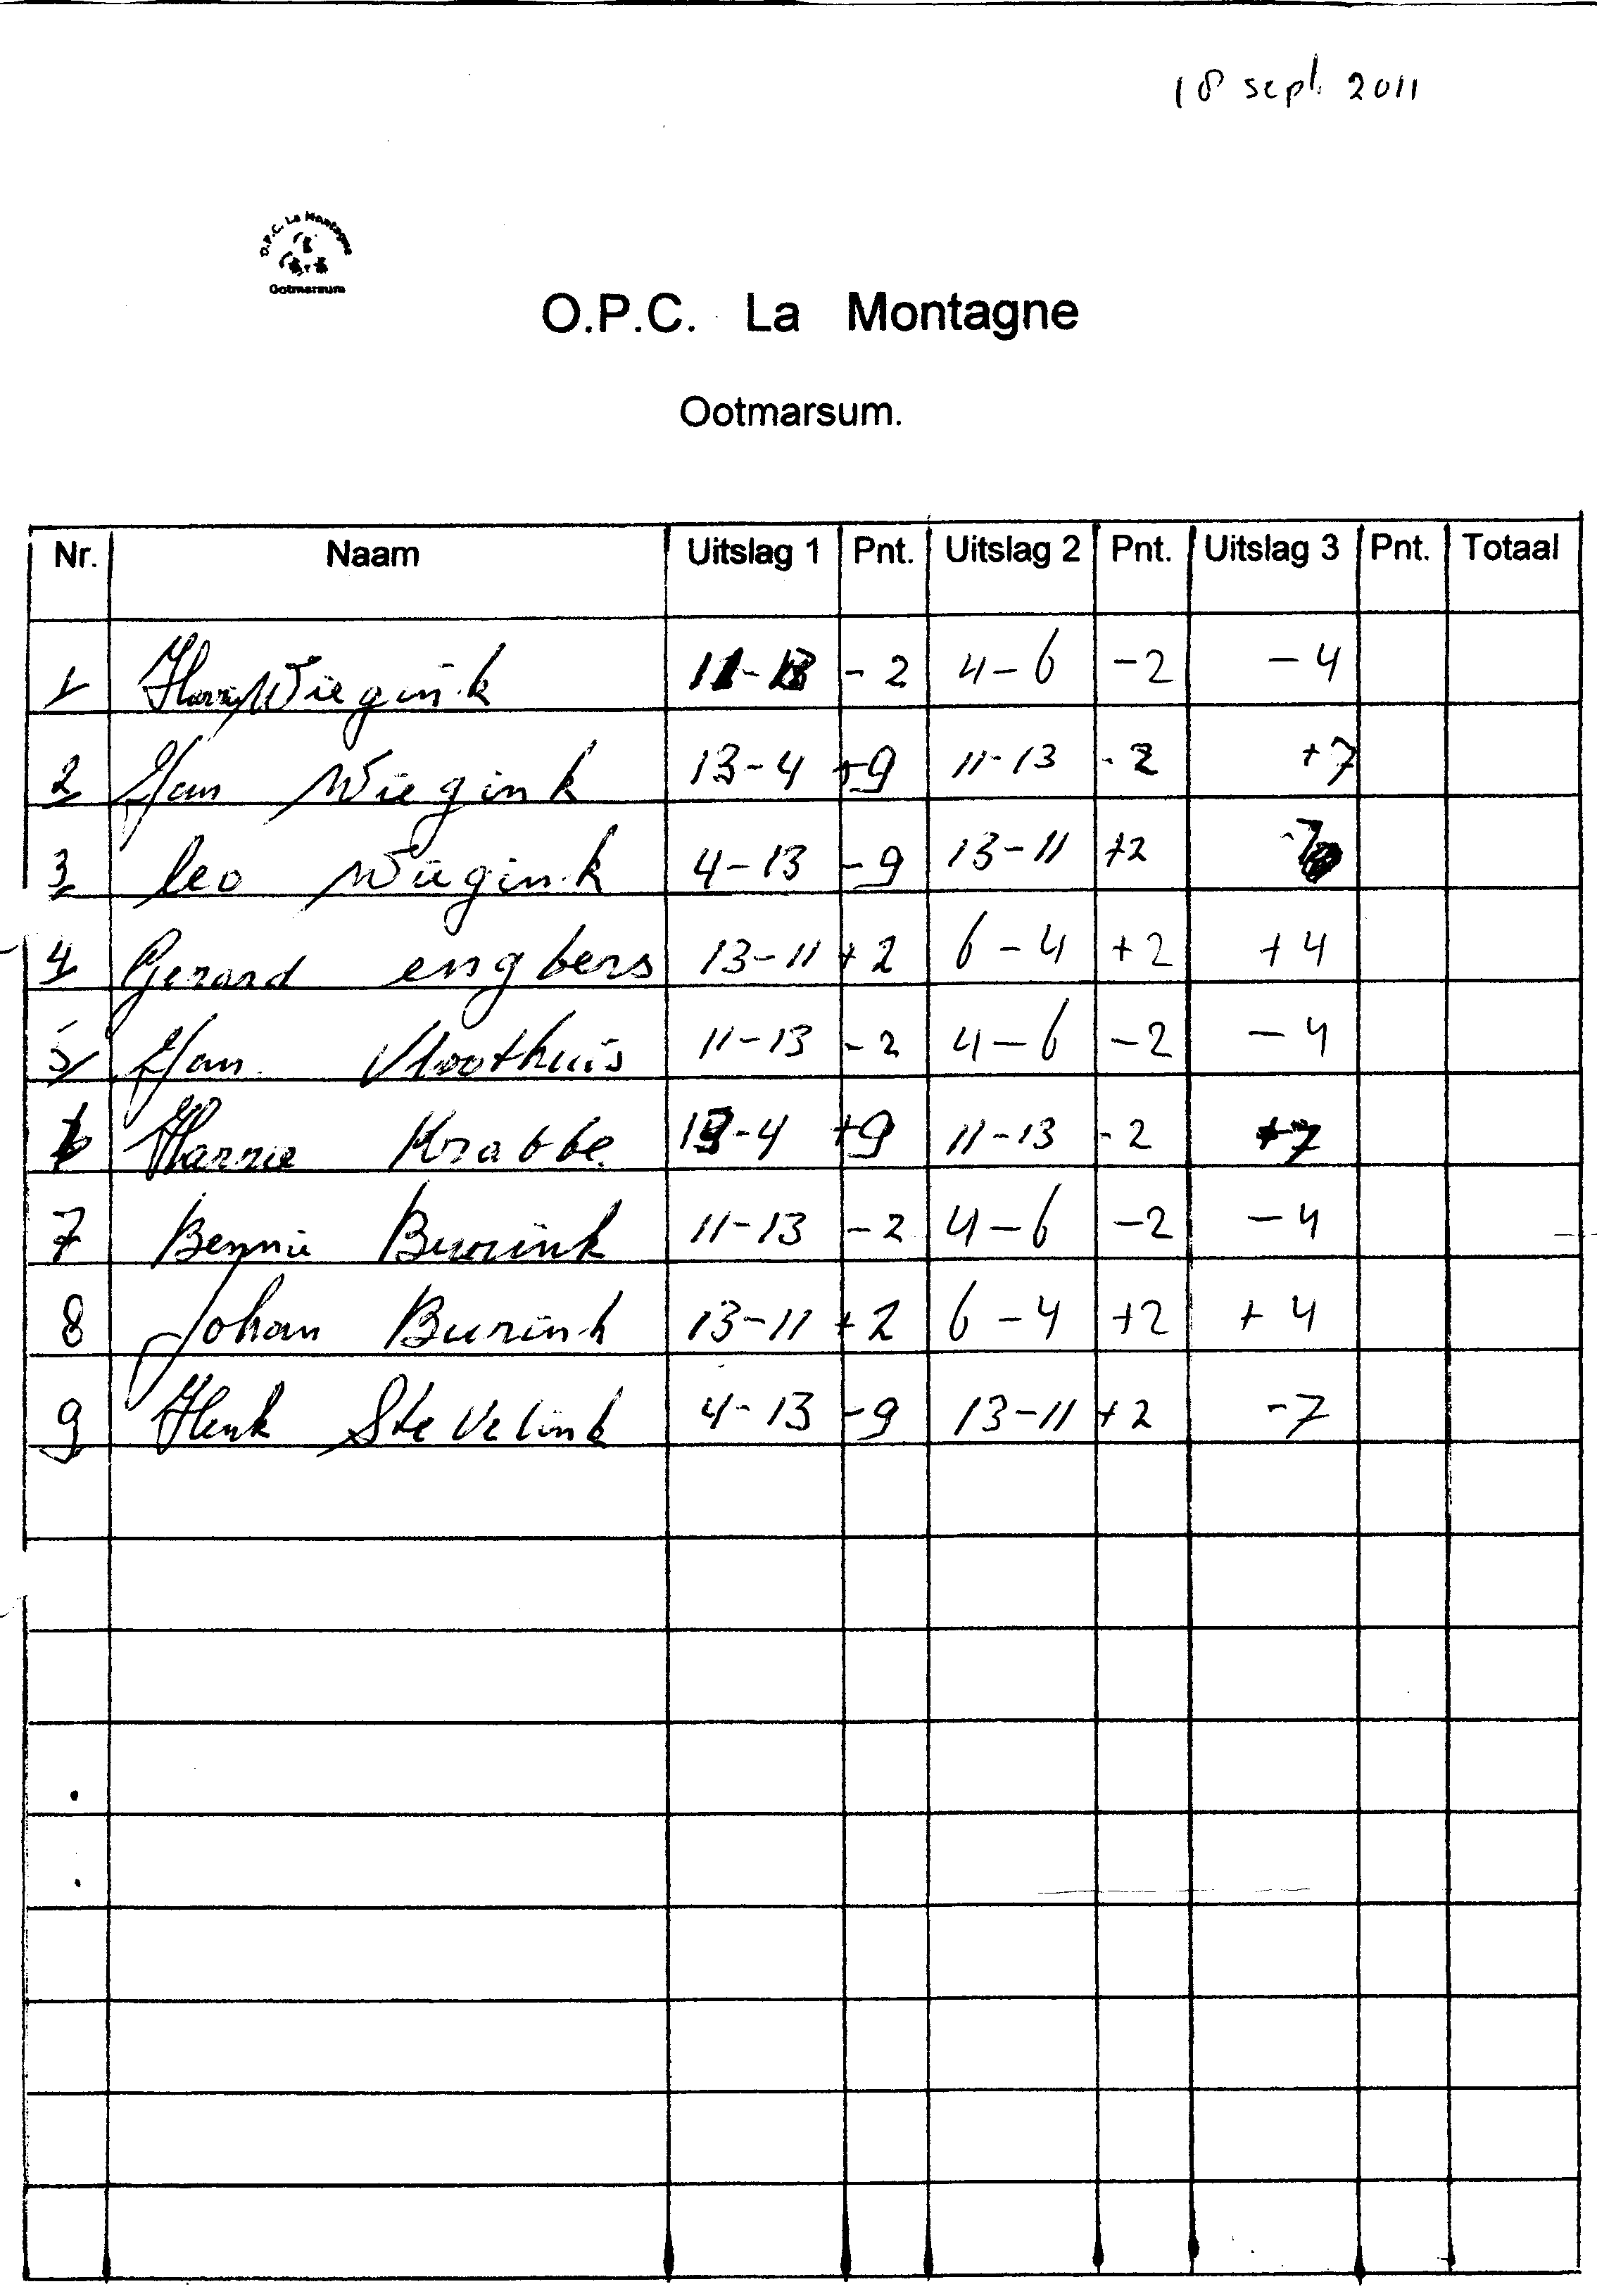 18 sept. 2011
O.P.C. La Montagne
Ootmarsum
O.P.C. La Montagne
Ootmarsum.
Nr. Naam Uitslag 1 Pnt. Uitslag 2 Pnt. Uitslag 3 Pnt. Totaal
1 Harry Wiegink 11-13 -2 4-6 -2 -4
2 Jan Wiegink 13-4 +9 11-13 -2 +7
3 leo Wiegink 4-13 -9 13-11 +2 -7
4 Gerard engbers 13-11 +2 6-4 +2 +4
5 Jan Vloothuis 11-13 -2 4-6 -2 -4
6 Harrie Krabbe 13-4 +9 11-13 -2 +7
7 Bennie Burink 11-13 -2 4-6 -2 -4
8 Johan Burink 13-11 +2 6-4 +2 +4
9 Henk Stevelink 4-13 -9 13-11 +2 -7